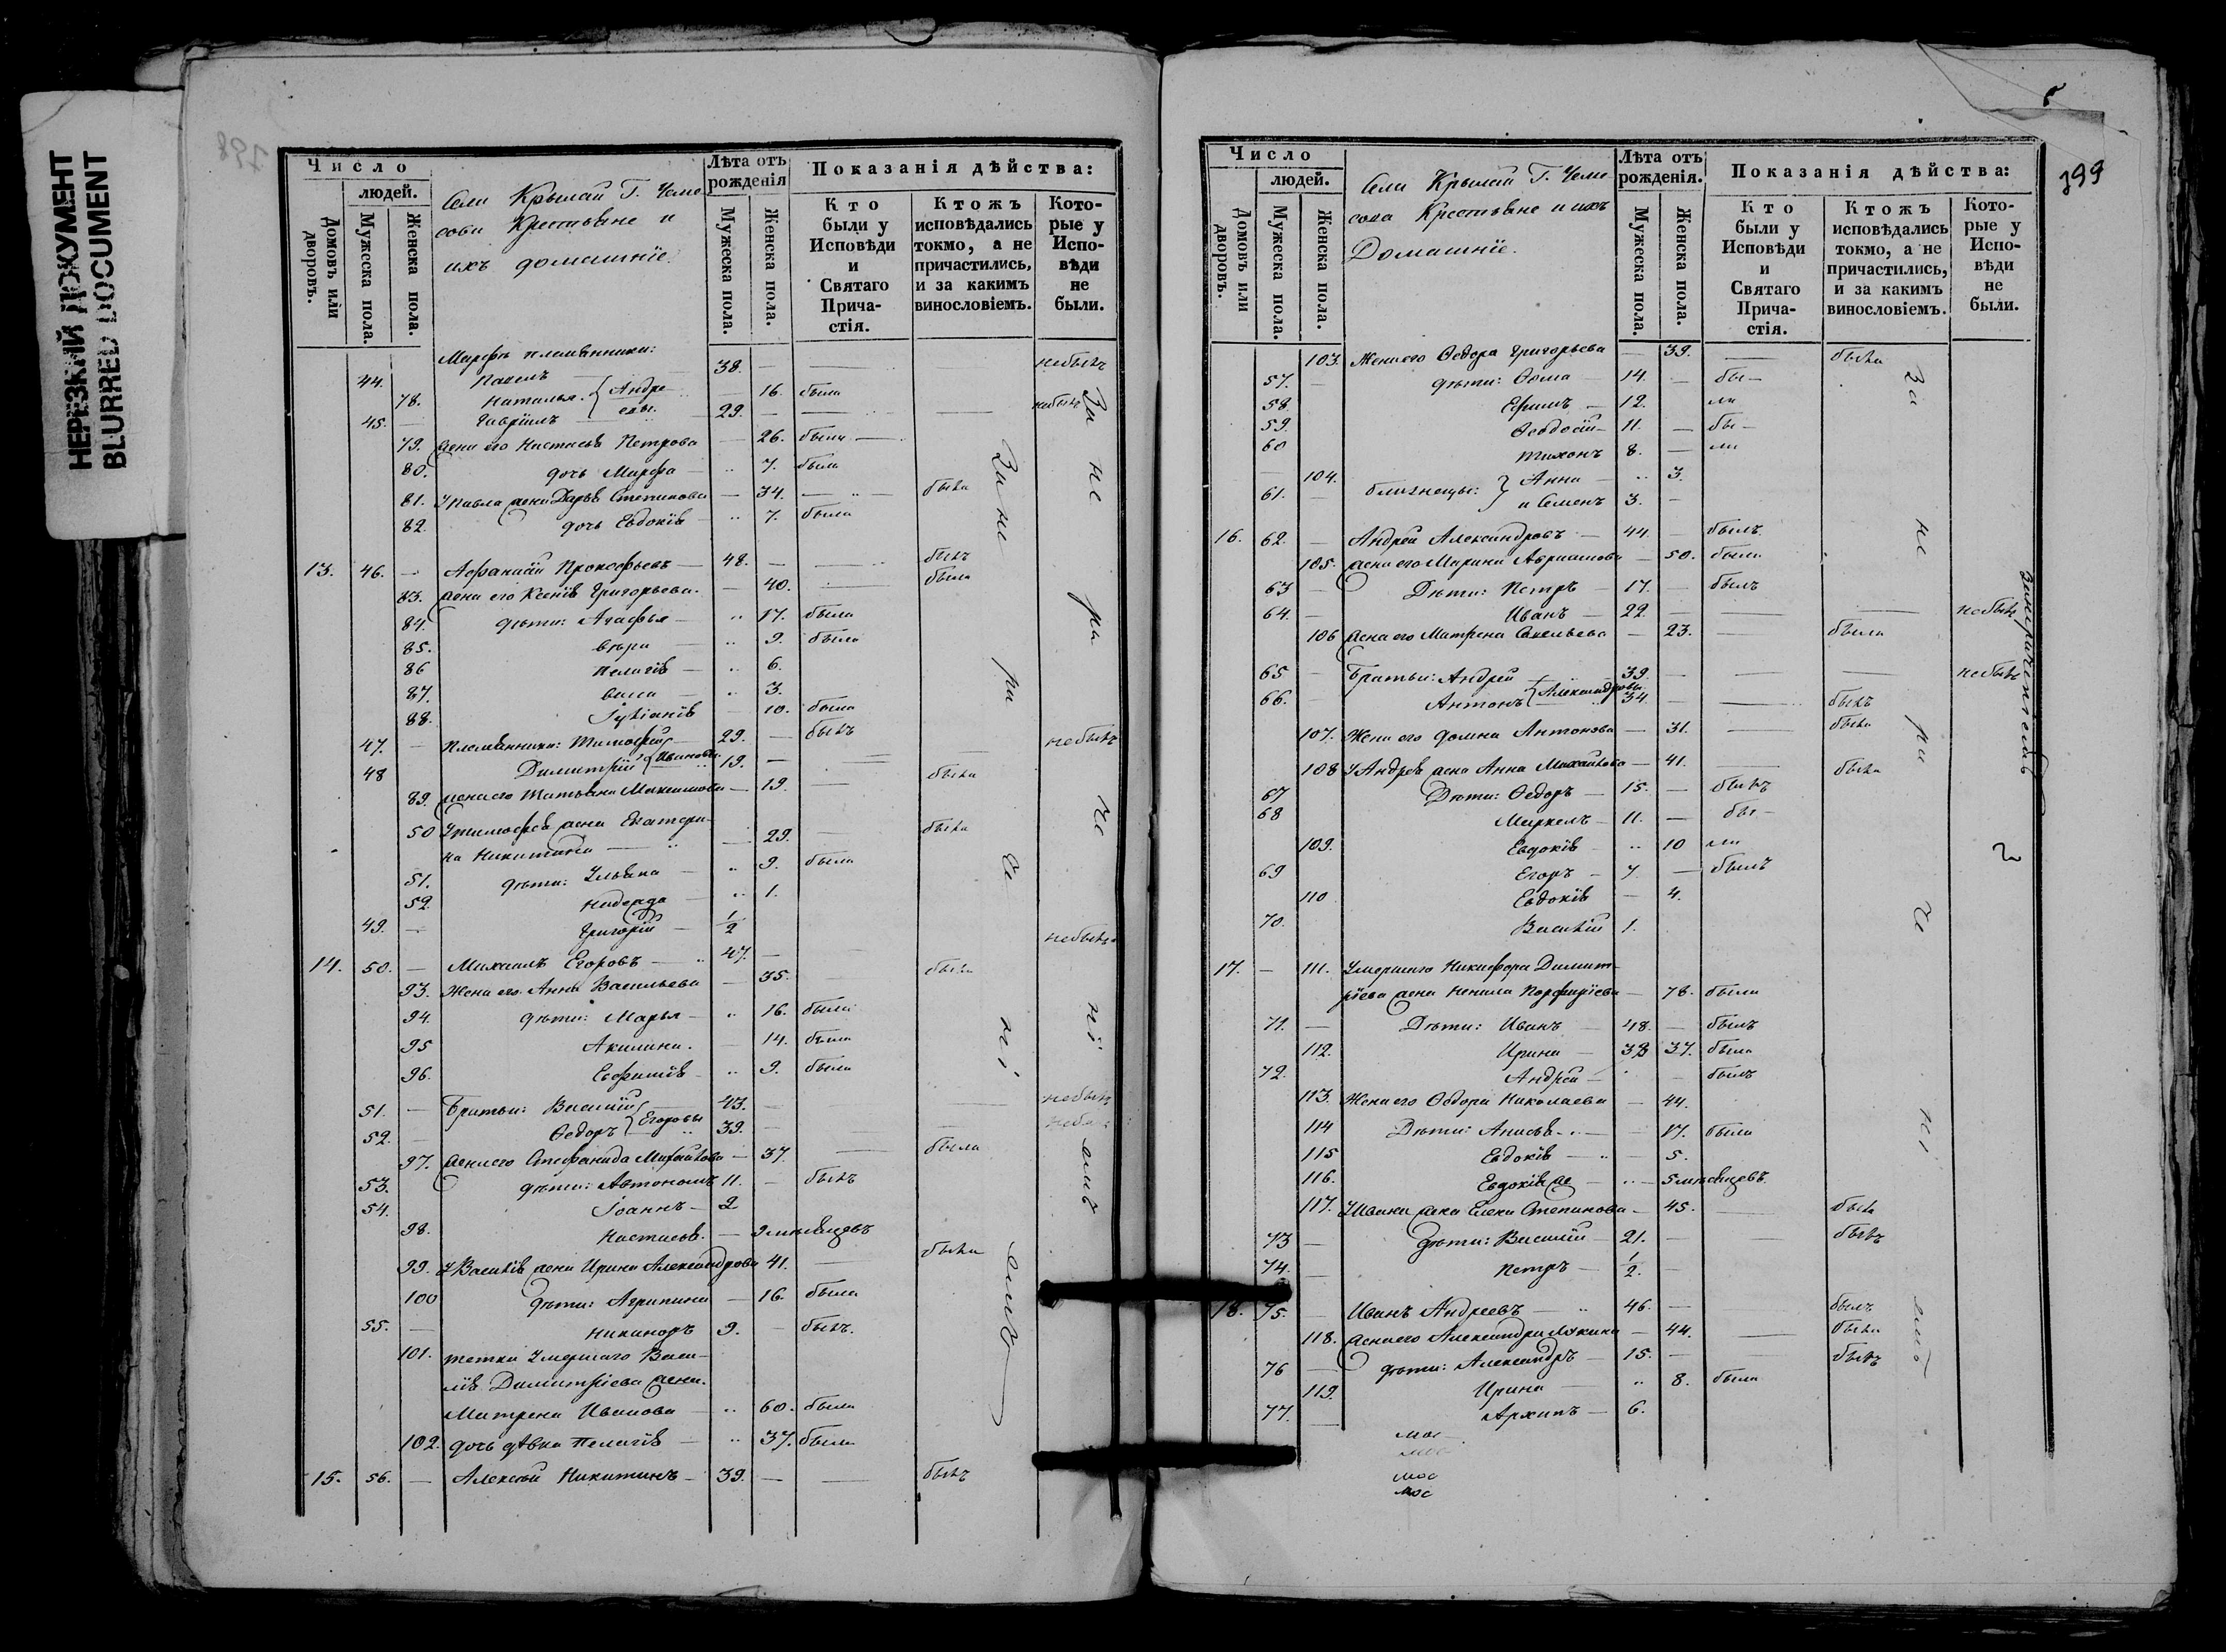 НЕРЕЗКИЙ ДОКУМЕНТ
BLURRED DOCUMENT
Число
людей.
Домовъ или дворовъ.
Мужеска пола.
Женска пола.
Села Крымай Г. Чеме
сова Крестьяне и
ихъ домашніе.
Лѣта отъ рожденія
Мужеска пола.
Женска пола.
Показанія дѣйства:
Кто были у Исповѣди и Святаго Причастія.
Ктожъ исповѣдались токмо, а не причастились, и за какимъ винословіемъ.
Которые у Исповѣди не были.
Марфы племянники:
44. Павелъ 38. небылъ
78. Наталья Андре 16. была
45. Гавріилъ евы 29. небылъ
79. жена его Настасья Петрова 26. была
80. дочь Марфа 7. была
81. У Павла жена Дарья Степанова 34. была
82. дочь Евдокія 7. была
13. 46. Афанасій Прокофьевъ 48. былъ
83. жена его Ксенія Григорьева 40. была
84. дѣти: Агафья 17. была
85. вѣра 9. была
86 Пелагія 6.
87. 3.
88. Іуліанія 10. была
47. Племянники: Тимофей 29. былъ небылъ
48 Димитрій Ивановы 19.
89. жена его Татьяна Максимова 19. была
50 У Тимофея жена Екатери-
на Никитина 29. была
51. дѣти: Ульяна 9. была
52. Надежда 1.
49. Григорій 1/2
14. 50. Михаилъ Егоровъ 47. небылъ
93. Жена его Анна Васильева 35. была
94. дѣти: Марья 16. была
95 Акилина. 14. была
96. Евфимія 9. была
51. Братья: Василій 43. небылъ
52. Ѳедоръ Егоровы 39.
97. жена его Стефанида Михайлова 37. была
53. дѣти: Автономъ 11. былъ
54. Іоаннъ 2
98. Настасья. 9 мѣсяцевъ
99. У Василія жена Ирина Александрова 41. была
100 дѣти: Агрипина 16. была
55. Никаноръ 9. былъ.
101. тетка Умершаго Васи-
лія Димитріева жена
Матрена Иванова 60. была
102. дочь дѣвка Пелагія 37. была
15. 56. Алексѣй Никитинъ 39. былъ
За не ра че ні емъ
За не ра че ні емъ
799
Число
людей.
Домовъ или дворовъ.
Мужеска пола.
Женска пола.
Села Крымай Г. Чеме
сова Крестьяне и ихъ
Домашніе.
Лѣта отъ рожденія.
Мужеска пола.
Женска пола.
Показанія дѣйства:
Кто были у Исповѣди и Святаго Причастія.
Ктожъ исповѣдались токмо, а не причастились, и за какимъ винословіемъ.
Которые у Исповѣди не были.
103. Жена его Ѳедора Григорьева 39. была
57. дѣти: Ѳома 14. бы-
58. Ефимъ 12. ли
59. Ѳеодосій 11. бы-
60 Тихонъ 8. ли
104. близнецы: Анна 3.
61. и Семенъ 3.
16. 62. Андрей Александровъ 44. былъ
105. жена его Марина Авраамова 50. была
63 Дѣти: Петръ 17. былъ
64. Иванъ 22. небылъ
106 жена его Матрена Савельева 23. была
65 Братья: Андрей 39. небылъ
66. Антонъ Александровы 34. былъ
107. Жена его домна Антонова 31. была
108 У Андрея жена Анна Михайлова 41. была
67 Дѣти: Ѳедоръ 15. былъ
68 Маркелъ 11. бы-
109. Евдокія 10 ли
69 Егоръ 7. былъ
110 Евдокія 4.
70. Василій 1.
17. 111. Умершаго Никифора Димит-
ріева жена Ненила Порфиріева 78. была
71. Дѣти: Иванъ 48. былъ
112. Ирина 38 37. была
72. Андрей былъ
113. Жена его Ѳедора Николаева 44.
114 Дѣти: Анисья 17. была
115 Евдокія 5.
116. Евдокія же 5 мѣсяцевъ.
117. У Ивана жена Елена Степанова 45. была
73 дѣти: Василій 21. былъ
74. Петръ 1/2.
18. 75. Иванъ Андреевъ 46. былъ
118. жена его Александра Лукина 44. была
76 дѣти: Александръ 15. былъ
119. Ирина 8. была
77. Архипъ 6.
За не ра че ні емъ
Занераченіемъ
мос
мос
мос
мос